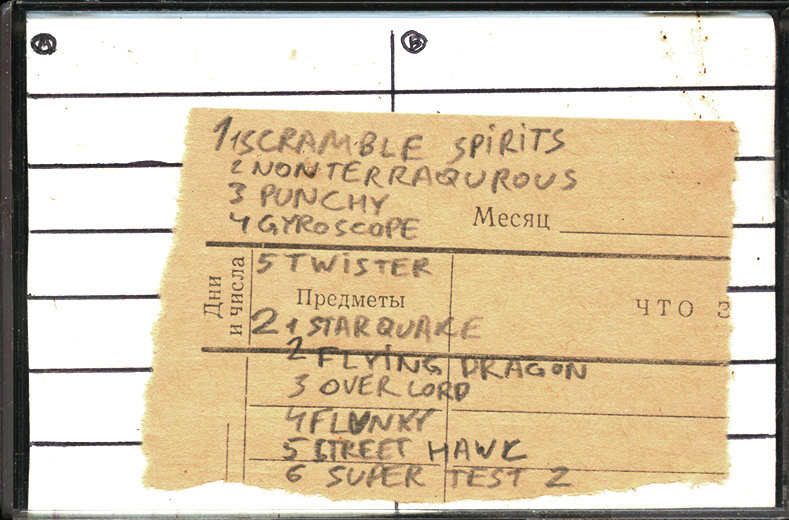 A B
1 1 SCRAMBLE SPIRITS
2 NONTERRAQUROUS
3 PUNCHY
4 GYROSCOPE Месяц
5 TWISTER
Дни и числа
Предметы ЧТО З
2 1 STARQUAKE
2 FLYING DRAGON
3 OVERLORD
4 FLUNKY
5 STREET HAWK
6 SUPER TEST 2